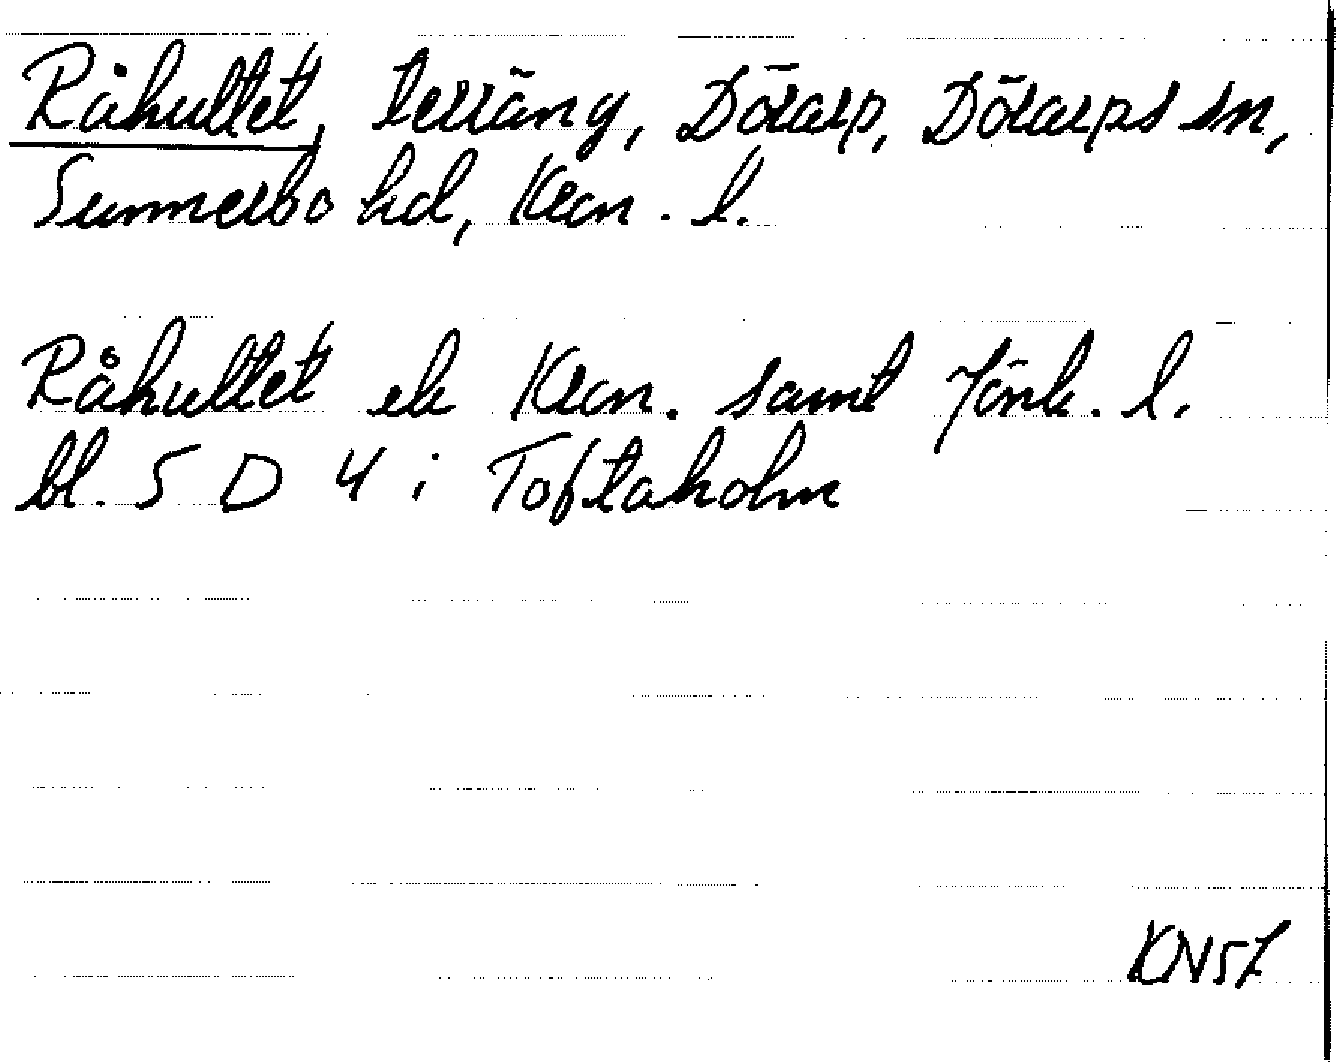 Råhultet, terräng, Dörarp, Dörarps sn,
Sunnerbo hd, Kron. l.
Råhultet ek Kron. samt Jönk. l.
bl. 5 D 4 i Toftaholm
KN57